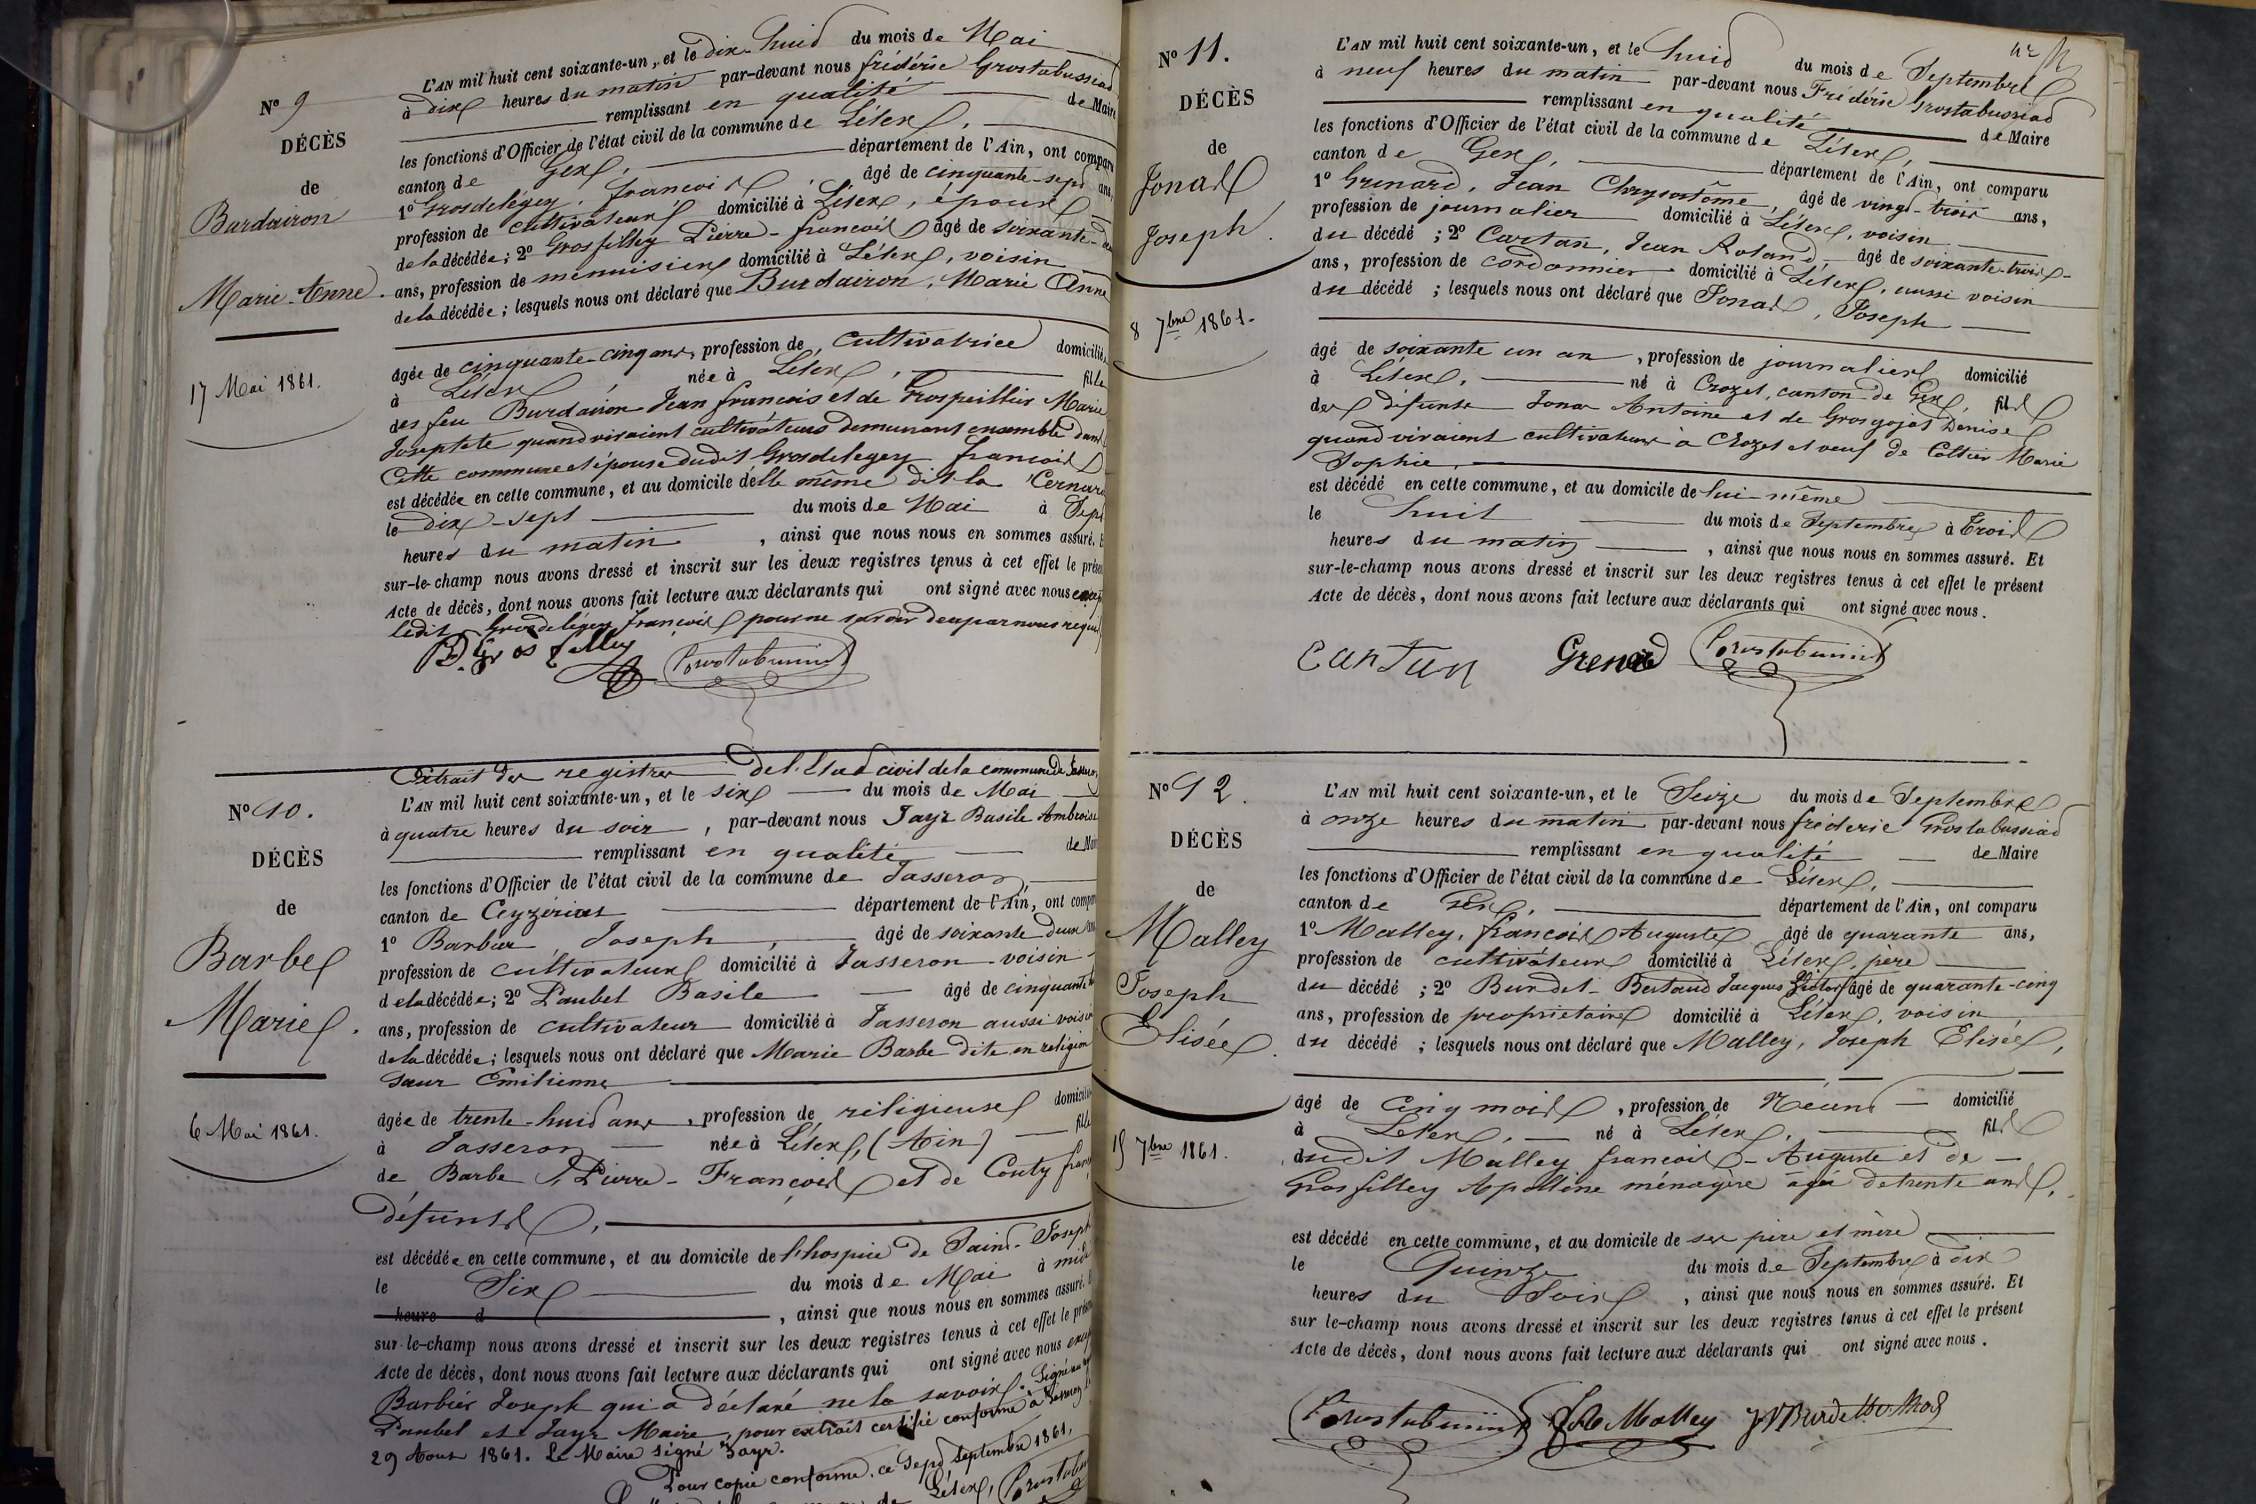 N° 9
DÉCÈS
de
Burdairon
Marie-Anne
17 Mai 1861.
L'AN mil huit cent soixante-un, et le dix-huit du mois de Mai
à dix heures du matin par-devant nous frédéric Grostabussiat
remplissant en qualité de Maire
les fonctions d'Officier de l'état civil de la commune de Lélex,
canton de Gex, département de l'Ain, ont comparu
1° Grosdelégey, françois, âgé de cinquante-sept ans,
profession de cultivateur domicilié à Lélex, époux
de la décédée; 2° Grosfilley Pierre-françois âgé de soixante-
ans, profession de menuisier domicilié à Lélex, voisin
de la décédée; lesquels nous ont déclaré que Burdairon, Marie Anne
âgée de cinquante-cinq ans, profession de cultivatrice domiciliée
à Lélex, née à Lélex, fille
des feu Burdairon Jean françois et de Grospeillier Marie
Josephte quand vivaient cultivateurs demeurant ensemble dans
Cette commune et épouse dudit Grosdelegey françois
est décédée en cette commune, et au domicile d'elle même dit la
le dix-sept du mois de Mai à Sept
heures du matin, ainsi que nous nous en sommes assuré. Et
sur-le-champ nous avons dressé et inscrit sur les deux registres tenus à cet effet le présent
Acte de décès, dont nous avons fait lecture aux déclarants qui ont signé avec nous excepté
ledit Grosdelégey françois pour ne savoir de ce par nous requis
P. Grosfilley Grostabussiat
N° 10.
DÉCÈS
de
Barbe
Marie.
6 Mai 1861.
Extrait des registres de l'Etat civil de la commune de Jasseron
L'AN mil huit cent soixante-un, et le six du mois de Mai
à quatre heures du soir, par-devant nous Jayr Basile Ambroise
remplissant en qualité de Maire
les fonctions d'Officier de l'état civil de la commune de Jasseron
canton de Ceyzériat département de l'Ain, ont comparu
1° Barbier, Joseph, âgé de soixante deux ans
profession de cultivateur domicilié à Jasseron voisin
de la décédée; 2° Paubel Basile âgé de cinquante
ans, profession de cultivateur domicilié à Jasseron aussi voisin
de la décédée; lesquels nous ont déclaré que Marie Barbe dite en religion
Sœur Emilienne
âgée de trente-huit ans, profession de réligieuse domiciliée
à Jasseron née à Lélex, (Ain) fille
de Barbe Pierre-François et de Couty
défunts,
est décédée en cette commune, et au domicile de l'hospice de Saint-Joseph
le Six du mois de Mai à midi
heure d, ainsi que nous nous en sommes assuré. Et
sur-le-champ nous avons dressé et inscrit sur les deux registres tenus à cet effet le présent
Acte de décès, dont nous avons fait lecture aux déclarants qui ont signé avec nous excepté
Barbier Joseph qui a déclaré ne le savoir. Signé au
Paubel et Jayr Maire, pour extrait certifié conforme à Jasseron le
29 Aout 1861. Le Maire signé Jayr.
Pour copie conforme, ce Sept Septembre 1861,
Lélex, Grostabussiat
N° 11.
DÉCÈS
de
Jonas
Joseph.
8 7bre 1861.
L'AN mil huit cent soixante-un, et le huit du mois de Septembre
à neuf heures du matin par-devant nous Frédéric Grostabussiat
remplissant en qualité de Maire
les fonctions d'Officier de l'état civil de la commune de Lélex,
canton de Gex, département de l'Ain, ont comparu
1° Grenard, Jean Chrysostôme, âgé de vingt-trois ans,
profession de journalier domicilié à Lélex, voisin
du décédé; 2° Cartan, Jean Roland, âgé de soixante-trois
ans, profession de cordonnier domicilié à Lélex, aussi voisin
du décédé; lesquels nous ont déclaré que Jonas, Joseph
âgé de soixante un an, profession de journalier domicilié
à Lélex, né à Crozet, canton de Gex, fils
des défunts Jonas Antoine et de Grosgojat Denise
quand vivaient cultivateurs à Crozet et veuf de Coltier Marie
Sophie,
est décédé en cette commune, et au domicile de lui-même
le huit du mois de Septembre à Trois
heures du matin, ainsi que nous nous en sommes assuré. Et
sur-le-champ nous avons dressé et inscrit sur les deux registres tenus à cet effet le présent
Acte de décès, dont nous avons fait lecture aux déclarants qui ont signé avec nous.
Cartan Grenard Grostabussiat
N° 12.
DÉCÈS
de
Malley
Joseph
Elisée.
15 7bre 1861.
L'AN mil huit cent soixante-un, et le Seize du mois de Septembre
à onze heures du matin par-devant nous fréderic Grostabussiat
remplissant en qualité de Maire
les fonctions d'Officier de l'état civil de la commune de Lélex,
canton de Gex, département de l'Ain, ont comparu
1° Malley, françois Auguste âgé de quarante ans,
profession de cultivateur domicilié à Lélex, père
du décédé; 2° Burdet-Bertaud Jacques Victor âgé de quarante-cinq
ans, profession de propriétaire domicilié à Lélex, voisin
du décédé; lesquels nous ont déclaré que Malley, Joseph Elisée,
âgé de cinq mois, profession de Néant domicilié
à Lélex, né à Lélex, fils
dudit Malley françois-Auguste et de
Grosfilley Apolline ménagère âgée de trente ans,
est décédé en cette commune, et au domicile de ses père et mère
le Quinze du mois de Septembre à dix
heures du Soir, ainsi que nous nous en sommes assuré. Et
sur le-champ nous avons dressé et inscrit sur les deux registres tenus à cet effet le présent
Acte de décès, dont nous avons fait lecture aux déclarants qui ont signé avec nous.
Grostabussiat Malley